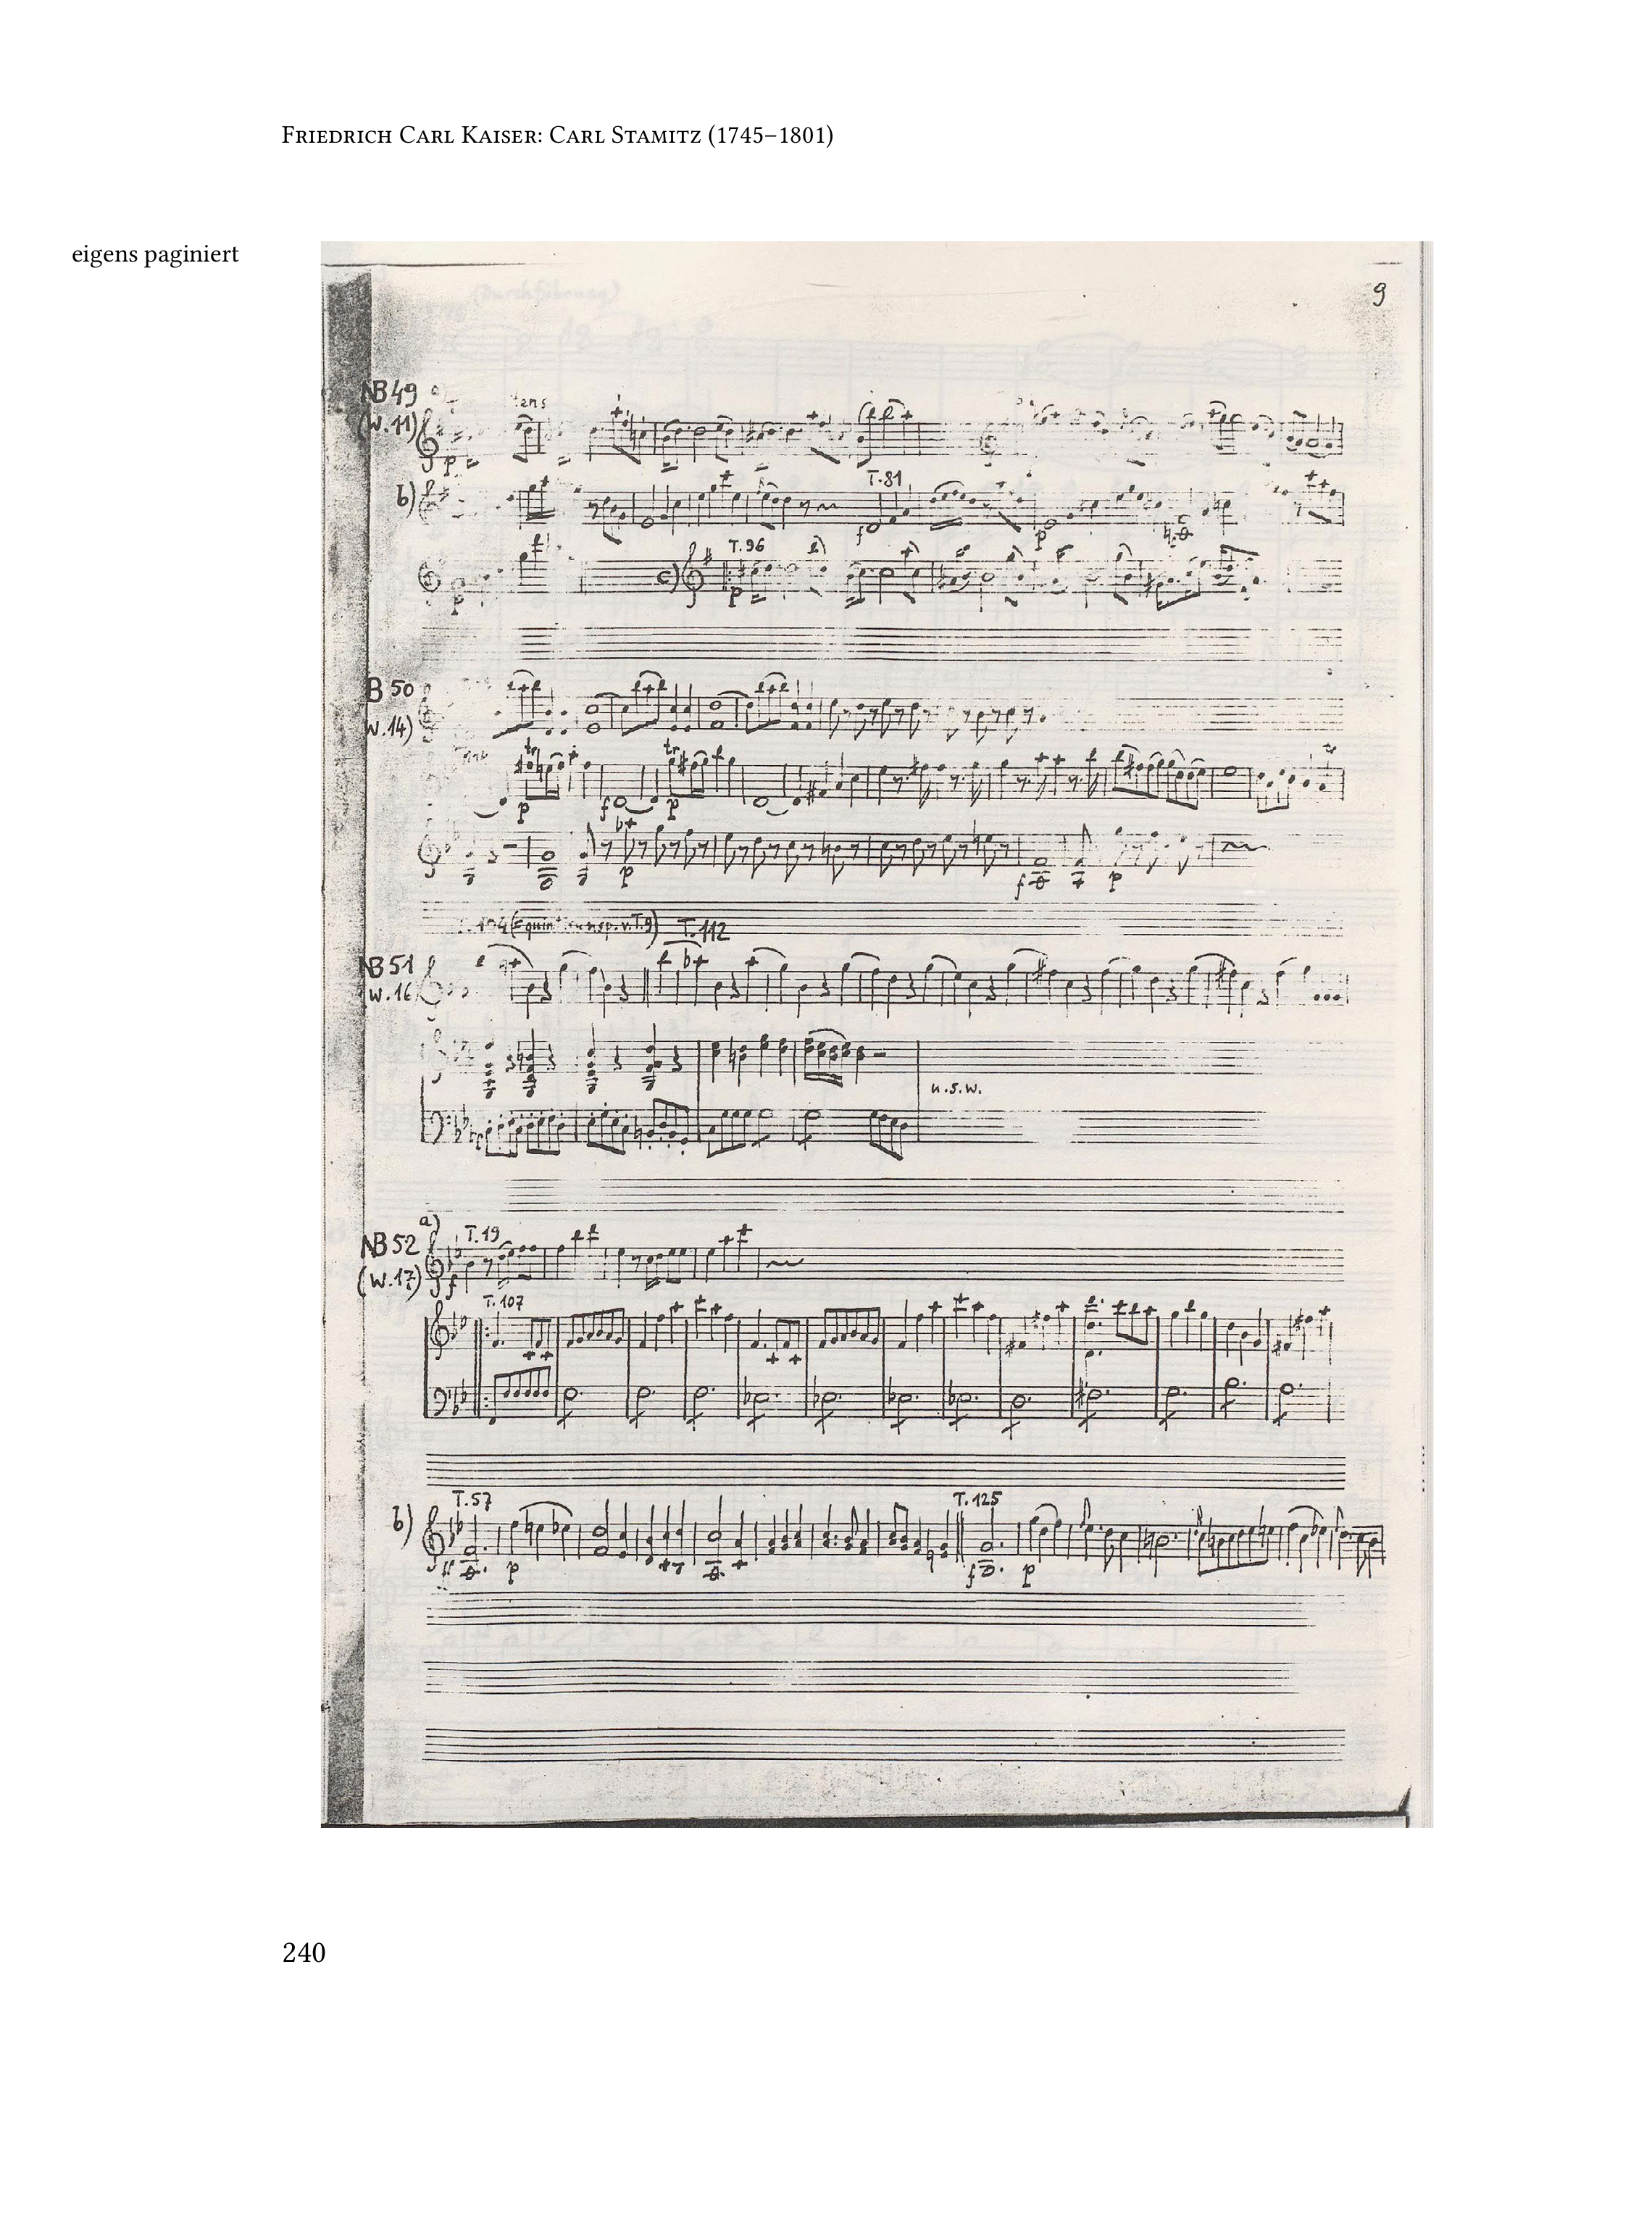 Friedrich Carl Kaiser: Carl Stamitz (1745–1801)
eigens paginiert
9
NB 49 a)
(W. 11)
p
b)
T. 81
f
p
p
c)
T. 96
p
B 50
W. 14)
tr
tr
p
f
p
p
f
p
T. 112
NB 51
W. 16
u.s.w.
NB 52
a)
T. 19
(W. 17)
f
T. 107
b)
T. 57
T. 125
ff
p
f
p
240